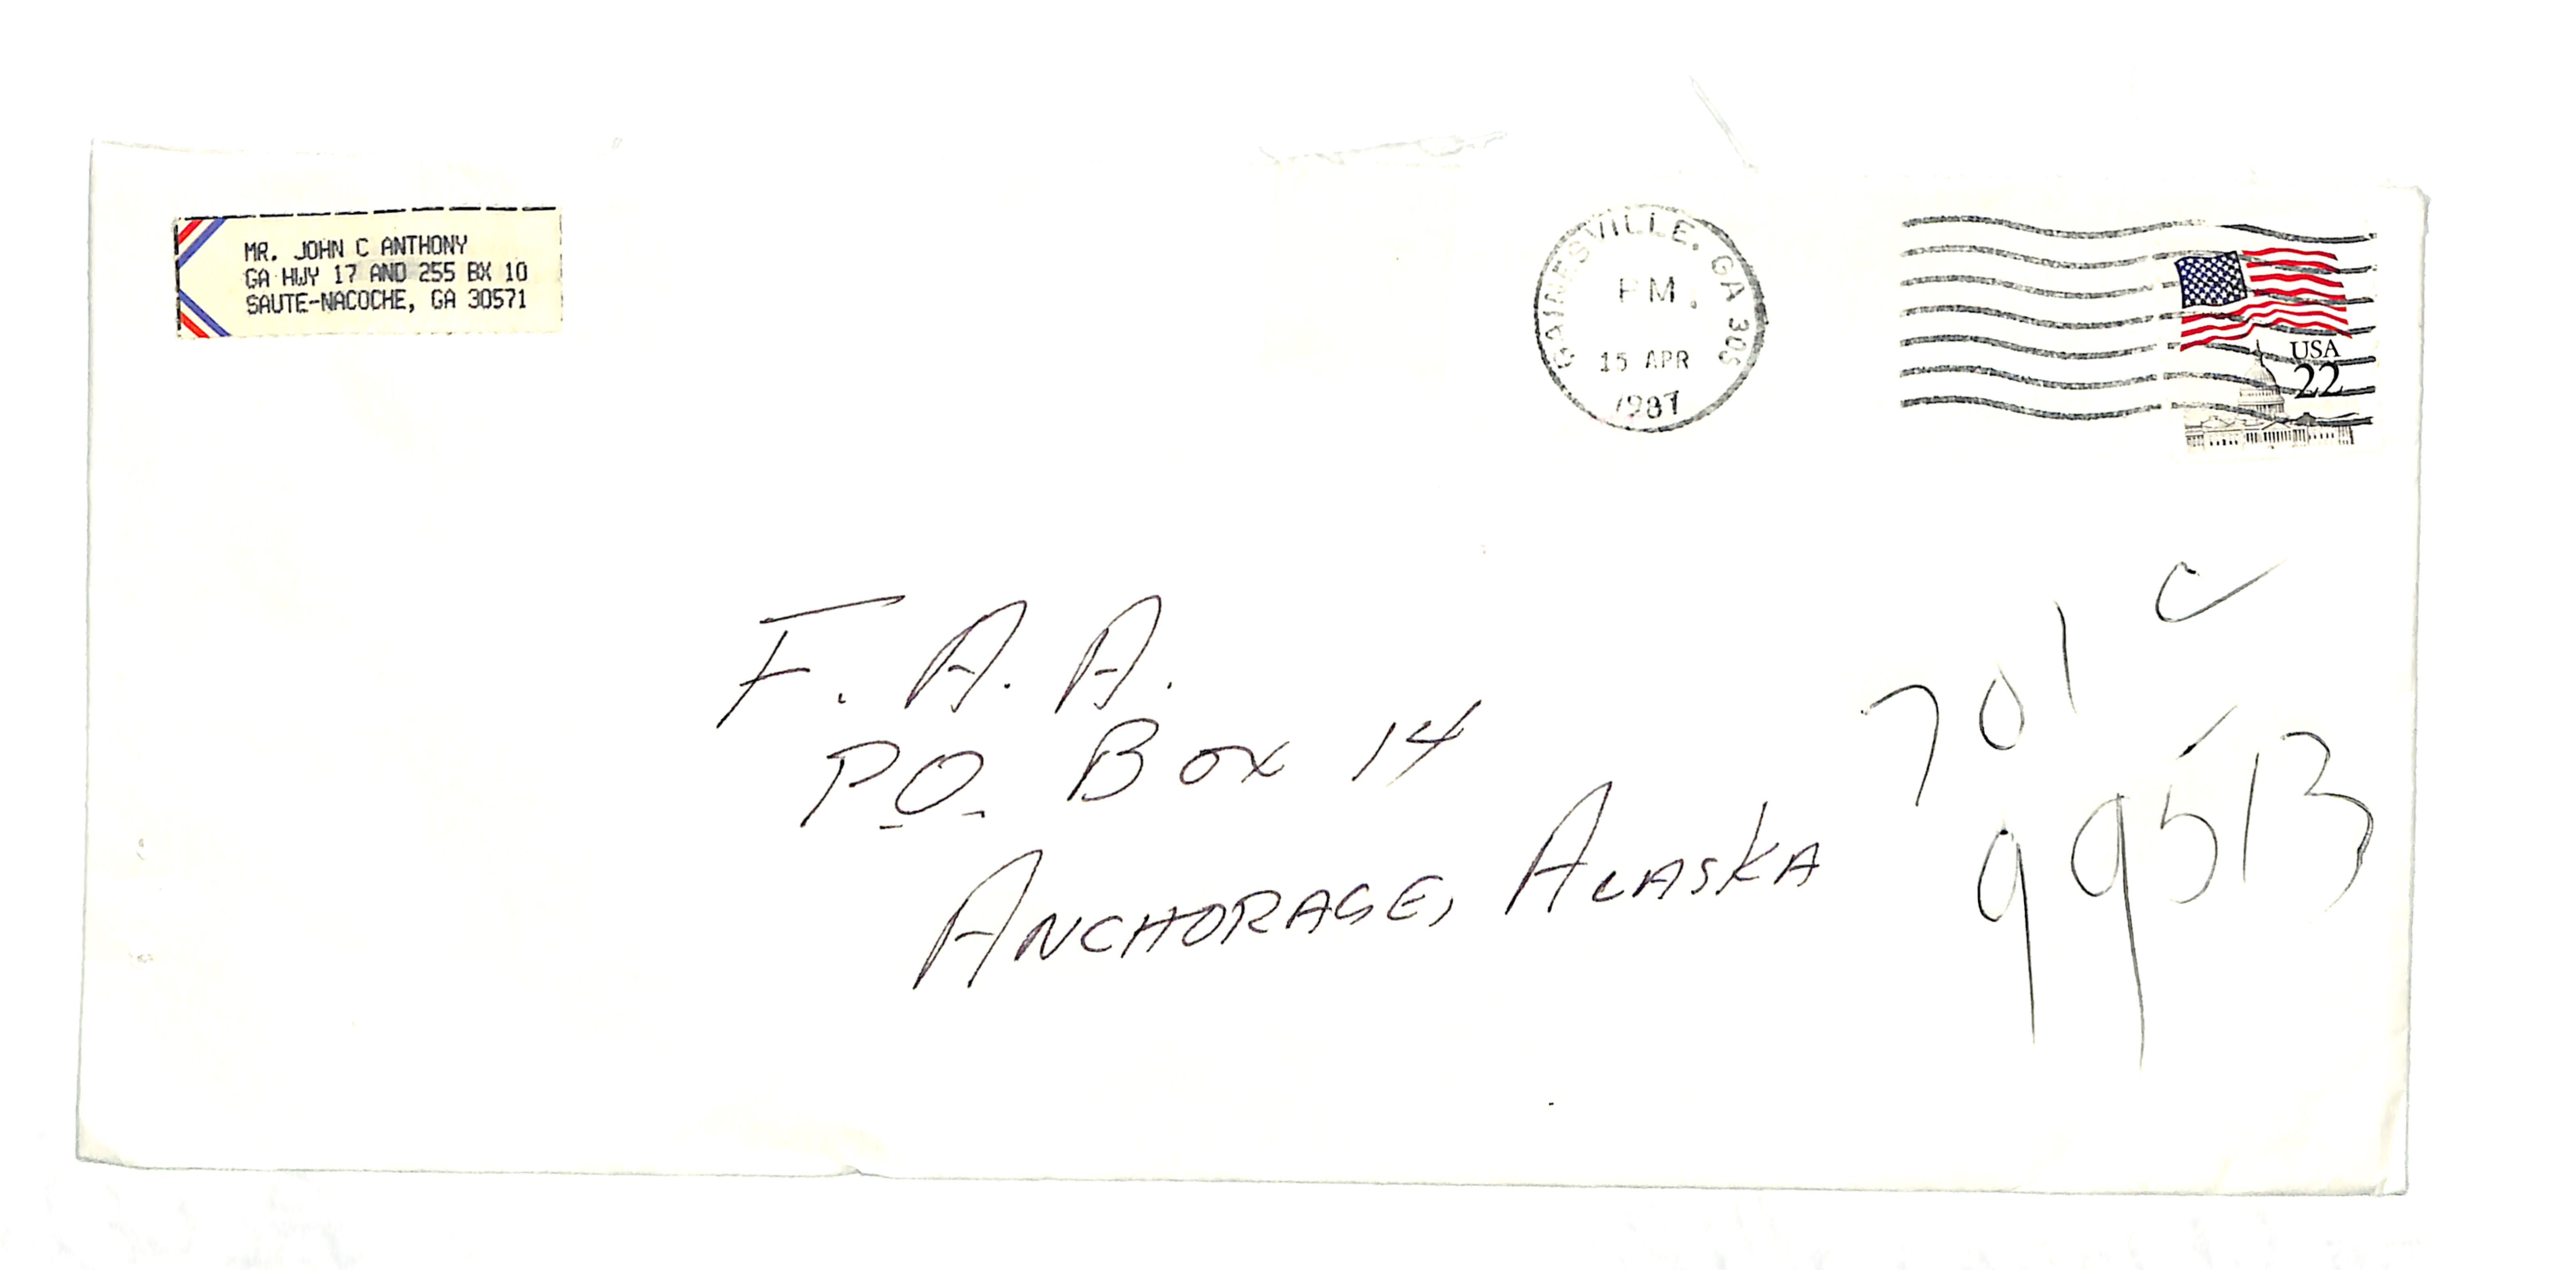 MR. JOHN C ANTHONY
GA HWY 17 AND 255 BX 10
SAUTE-NACOCHE, GA 30571
GAINESVILLE, GA 305
PM
15 APR
1987
USA
22
F. A. A.
P.O. Box 14
ANCHORAGE, ALASKA
701 C
99513